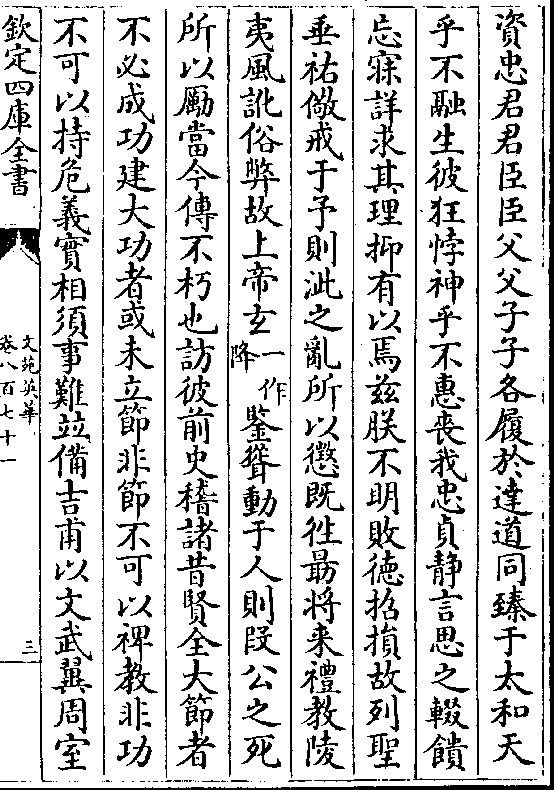 資忠君君臣臣父父子子各履於達道同臻于太和天
乎不融生彼狂悖神乎不惠喪我忠貞静言思之輟饋
忘寐詳求其理抑有以焉兹朕不明敗徳招損故列聖
垂祐儆戒于予則泚之亂所以懲既徃朂将来禮教陵
夷風訛俗弊故上帝玄一作降鑒聳動于人則段公之死
所以勵當今傳不朽也訪彼前史稽諸昔賢全大節者
不必成功建大功者或未立節非節不可以裨教非功
不可以持危義實相須事難並備吉甫以文武翼周室
欽定四庫全書
文苑英華
卷八百七十一
三